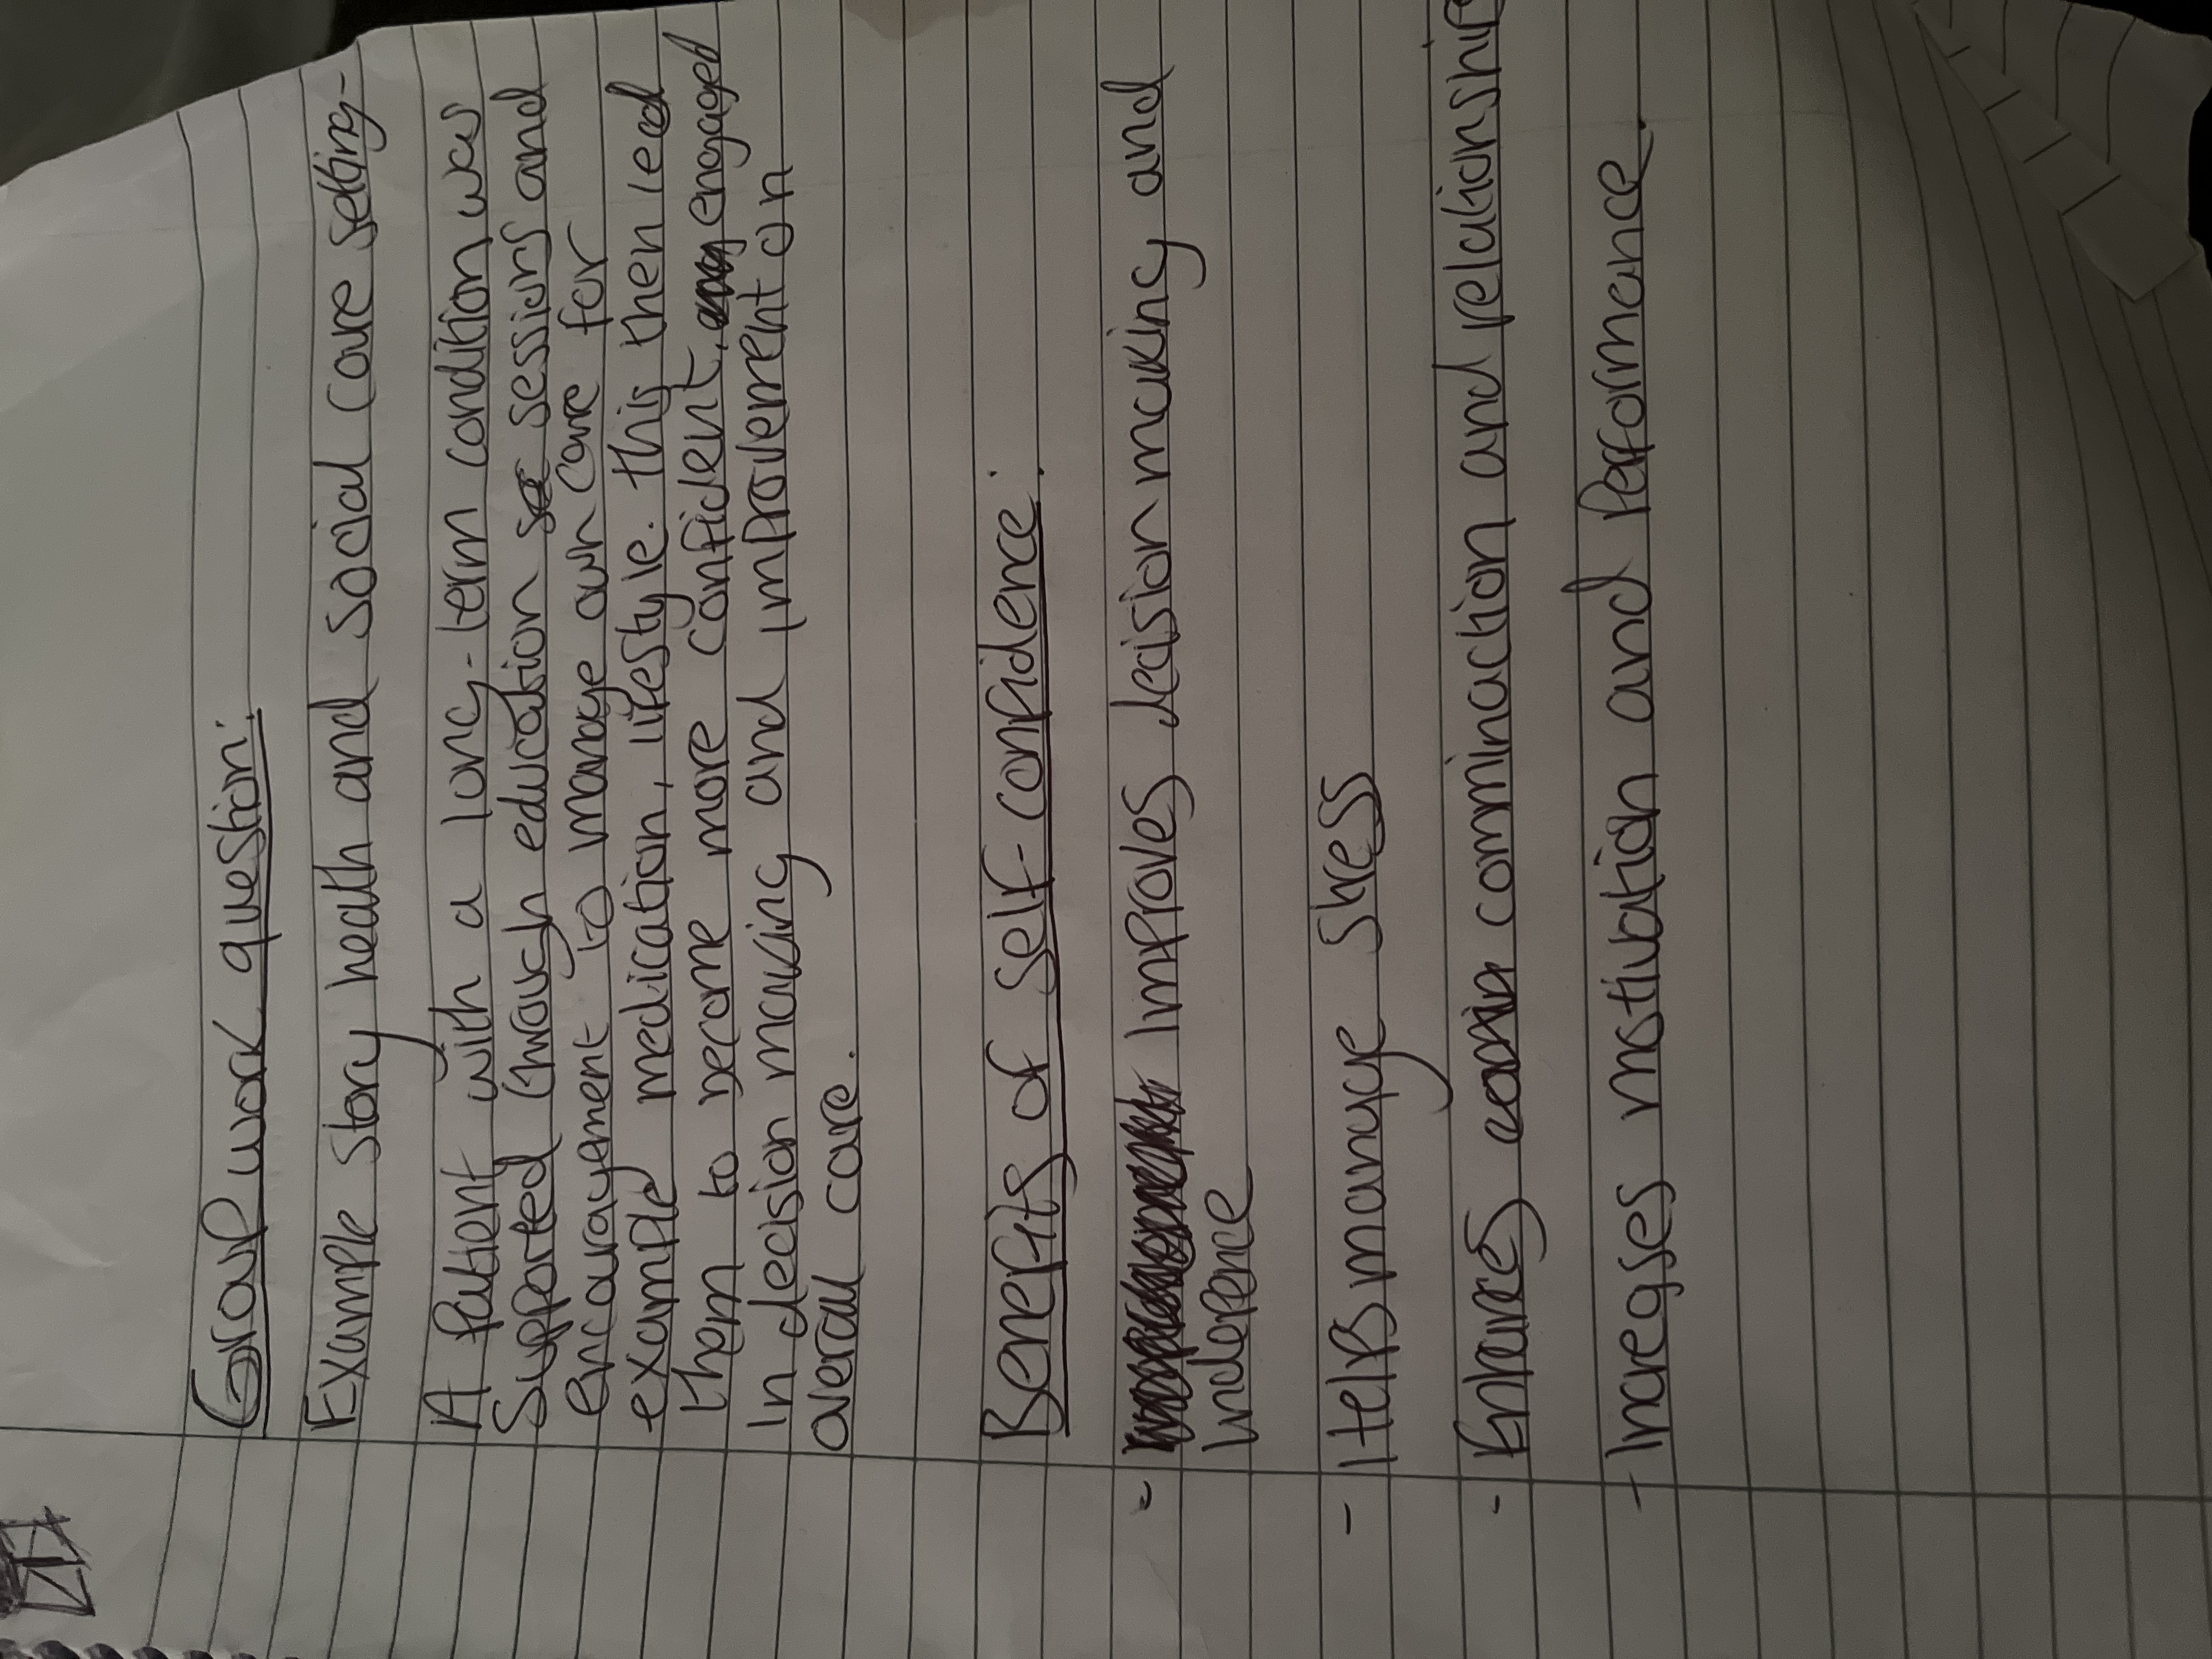 Group work question:
Example story heath and social care setting-
A patient with a long-term condition was
Supported through education sessions and
encouragement to manage own care for
example medication, lifestyle. this then led
them to become more confident, engaged
In decision making and improvement on
overall care.
Benefits of self-confidence:
- Improves decision making and
Indepence
- Helps manage stress
- Enhances comminaction and relationship
- Increases motivation and Performance.